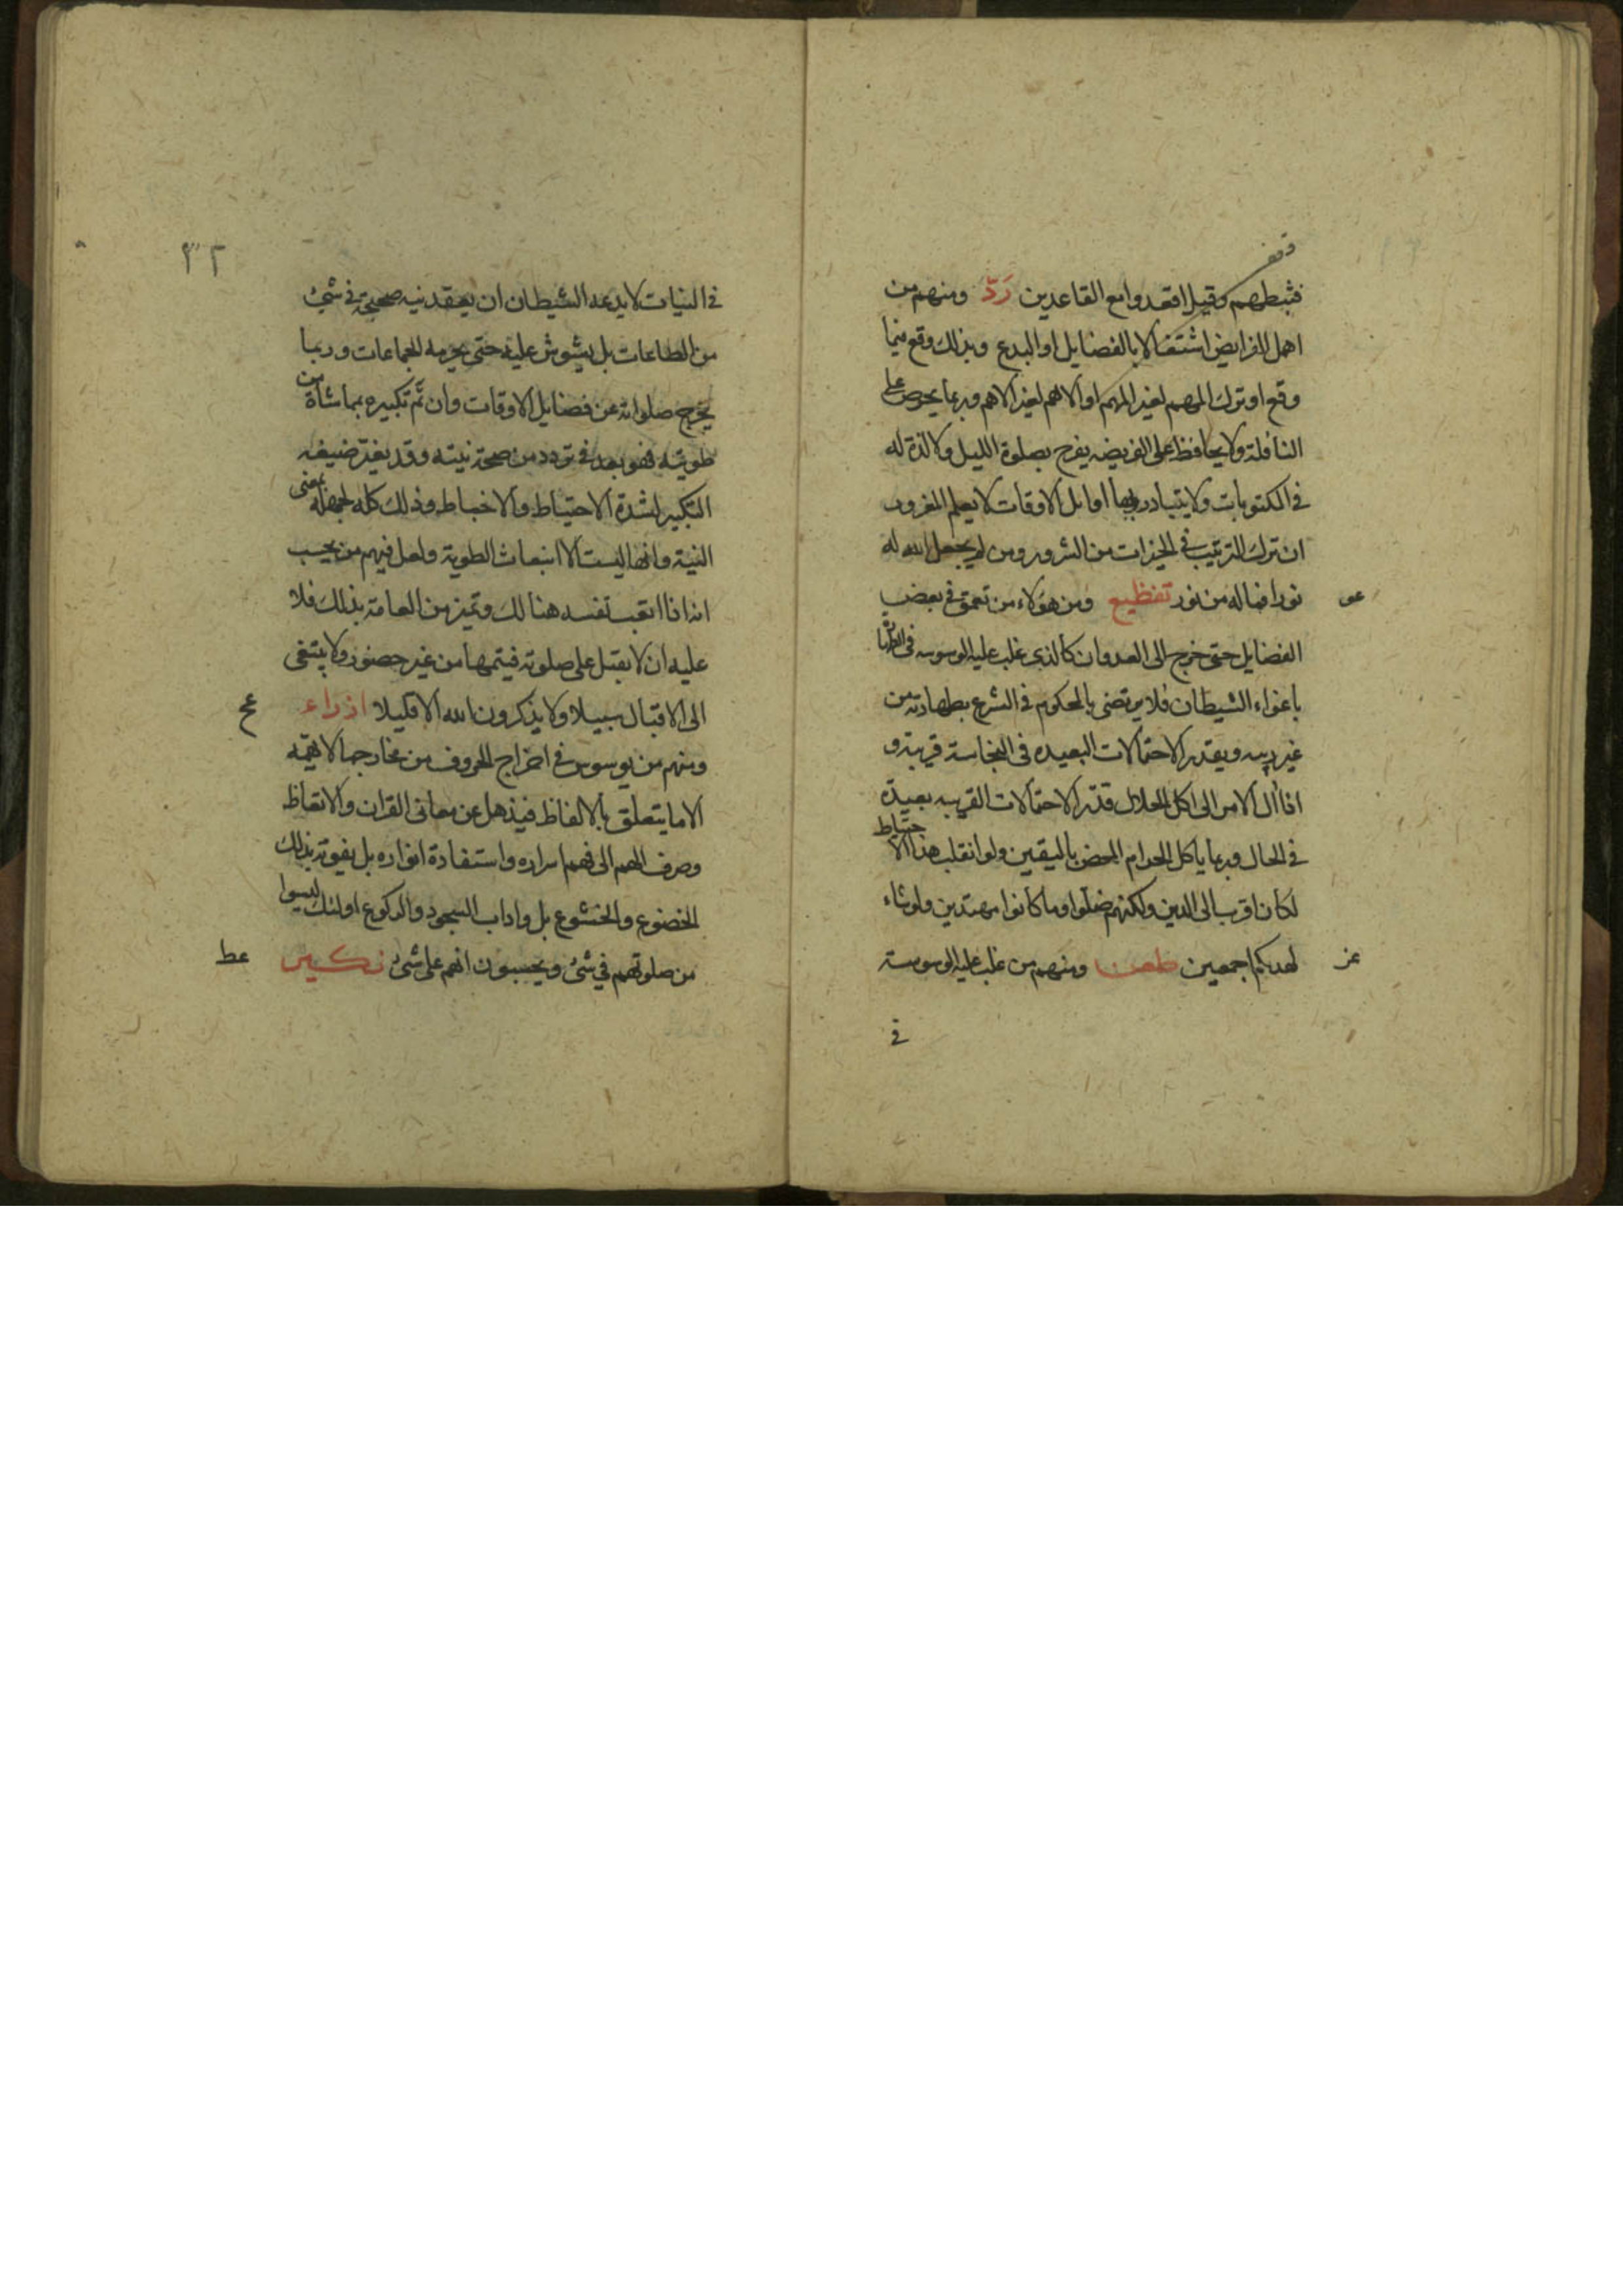 فثبطهم وقيل اقعدوا مع القاعدين رَدّ ومنهم من
اهمل الفرايض اشتغالا بالفضايل او البدع وبذلك وقع فيما
وقع او ترك المهم لغير المهم او الاهم لغير الاهم وربما يحرص على
النافلة ولا يحافظ على الفريضه يفرح بصلوة الليل ولا لذة له
في المكتوبات ولا يتبادر بها اوائل الاوقات لا يعلم المغرور
ان ترك الترتيب في الخيرات من الشرور ومن لم يجعل الله له
عو
نورا فما له من نور تفظيع ومن هؤلاء من تعمق في بعض
الفضايل حتى خرج الى العدوان كالذي غلب عليه الوسوسه في
باغواء الشيطان فلا يرتضى بالمحكوم في الشرع بطهارته من
غير ريبه ويقدر الاحتمالات البعيده في النجاسة قريبة و
اذا آل الامر الى اكل الحلال قدّر الاحتمالات القريبه بعيدة
في الحال وربما ياكل الحرام المحض باليقين ولو انقلب هذا الاحتياط
لكان اقرب الى الدين ولكنهم ضلوا وما كانوا مهتدين ولو شاء
عز
لهديكم اجمعين طعن ومنهم من غلب عليه الوسوسة
في
٣٢
في النيات لا يدعه الشيطان ان يعقد نيه صحيحة في شيء
من الطاعات بل يشوش عليه حتى يحرمه الجماعات وربما
يخرج صلواته عن فضايل الاوقات وان تم تكبيره بما شاة من
طويته فهو بعد في تردد من صحة نيته وقد يغير صيغه
التكبير لشدة الاحتياط والاخباط وذلك كله لجهله بمعنى
النية وانها ليست الا انبعاث الطوية ولعل فيهم من يحسب
انه اذا اتعب نفسه هنالك وتميز من العامة بذلك فلا
عليه ان لا يقبل على صلوته فيتمها من غير حضور ولا يبتغى
عح
الى الاقبال سبيلا ولا يذكرون الله الا قليلا ازراء
ومنهم من يوسوس في اخراج الحروف من مخارجها لا يهمه
الا ما يتعلق بالالفاظ فيذهل عن معانى القران والاتعاظ
وصرف الهم الى فهم اسراره واستفادة انواره بل يفوته بذلك
الخضوع والخشوع بل واداب السجود والركوع اولئك ليسوا
عط
من صلوتهم في شئ ويحسبون انهم على شئ نكير